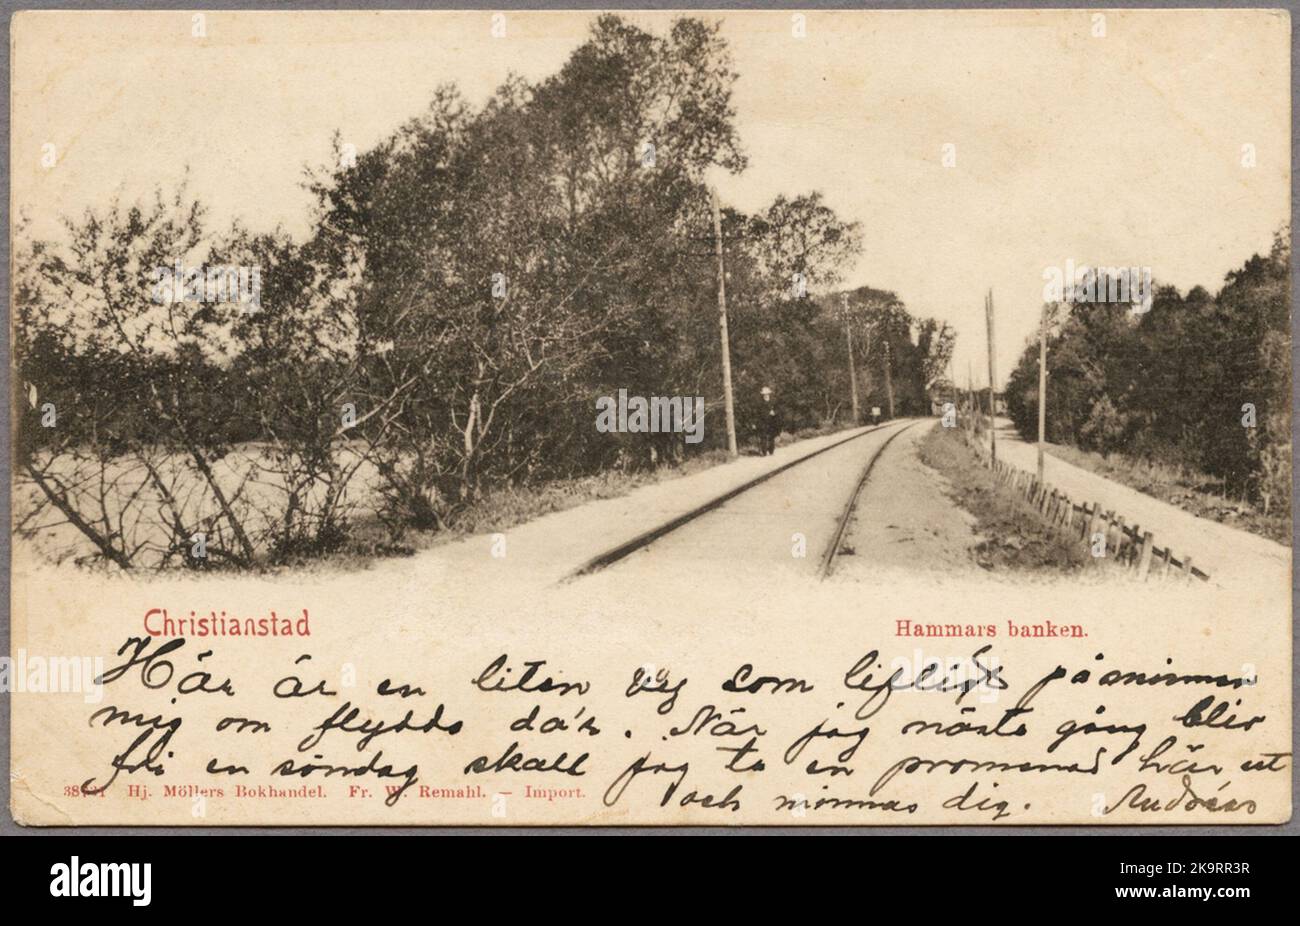 Christianstad
Hammars banken.
Här är en liten väg som lifligt påminner
mig om flydda da'r. När jag nästa gång blir
fri en söndag skall jag ta en promenad här ut
och minnas dig.
Hj. Möllers Bokhandel. Fr. W. Remahl. – Import.
alamy
alamy
Image ID: 2K9RR3R
www.alamy.com